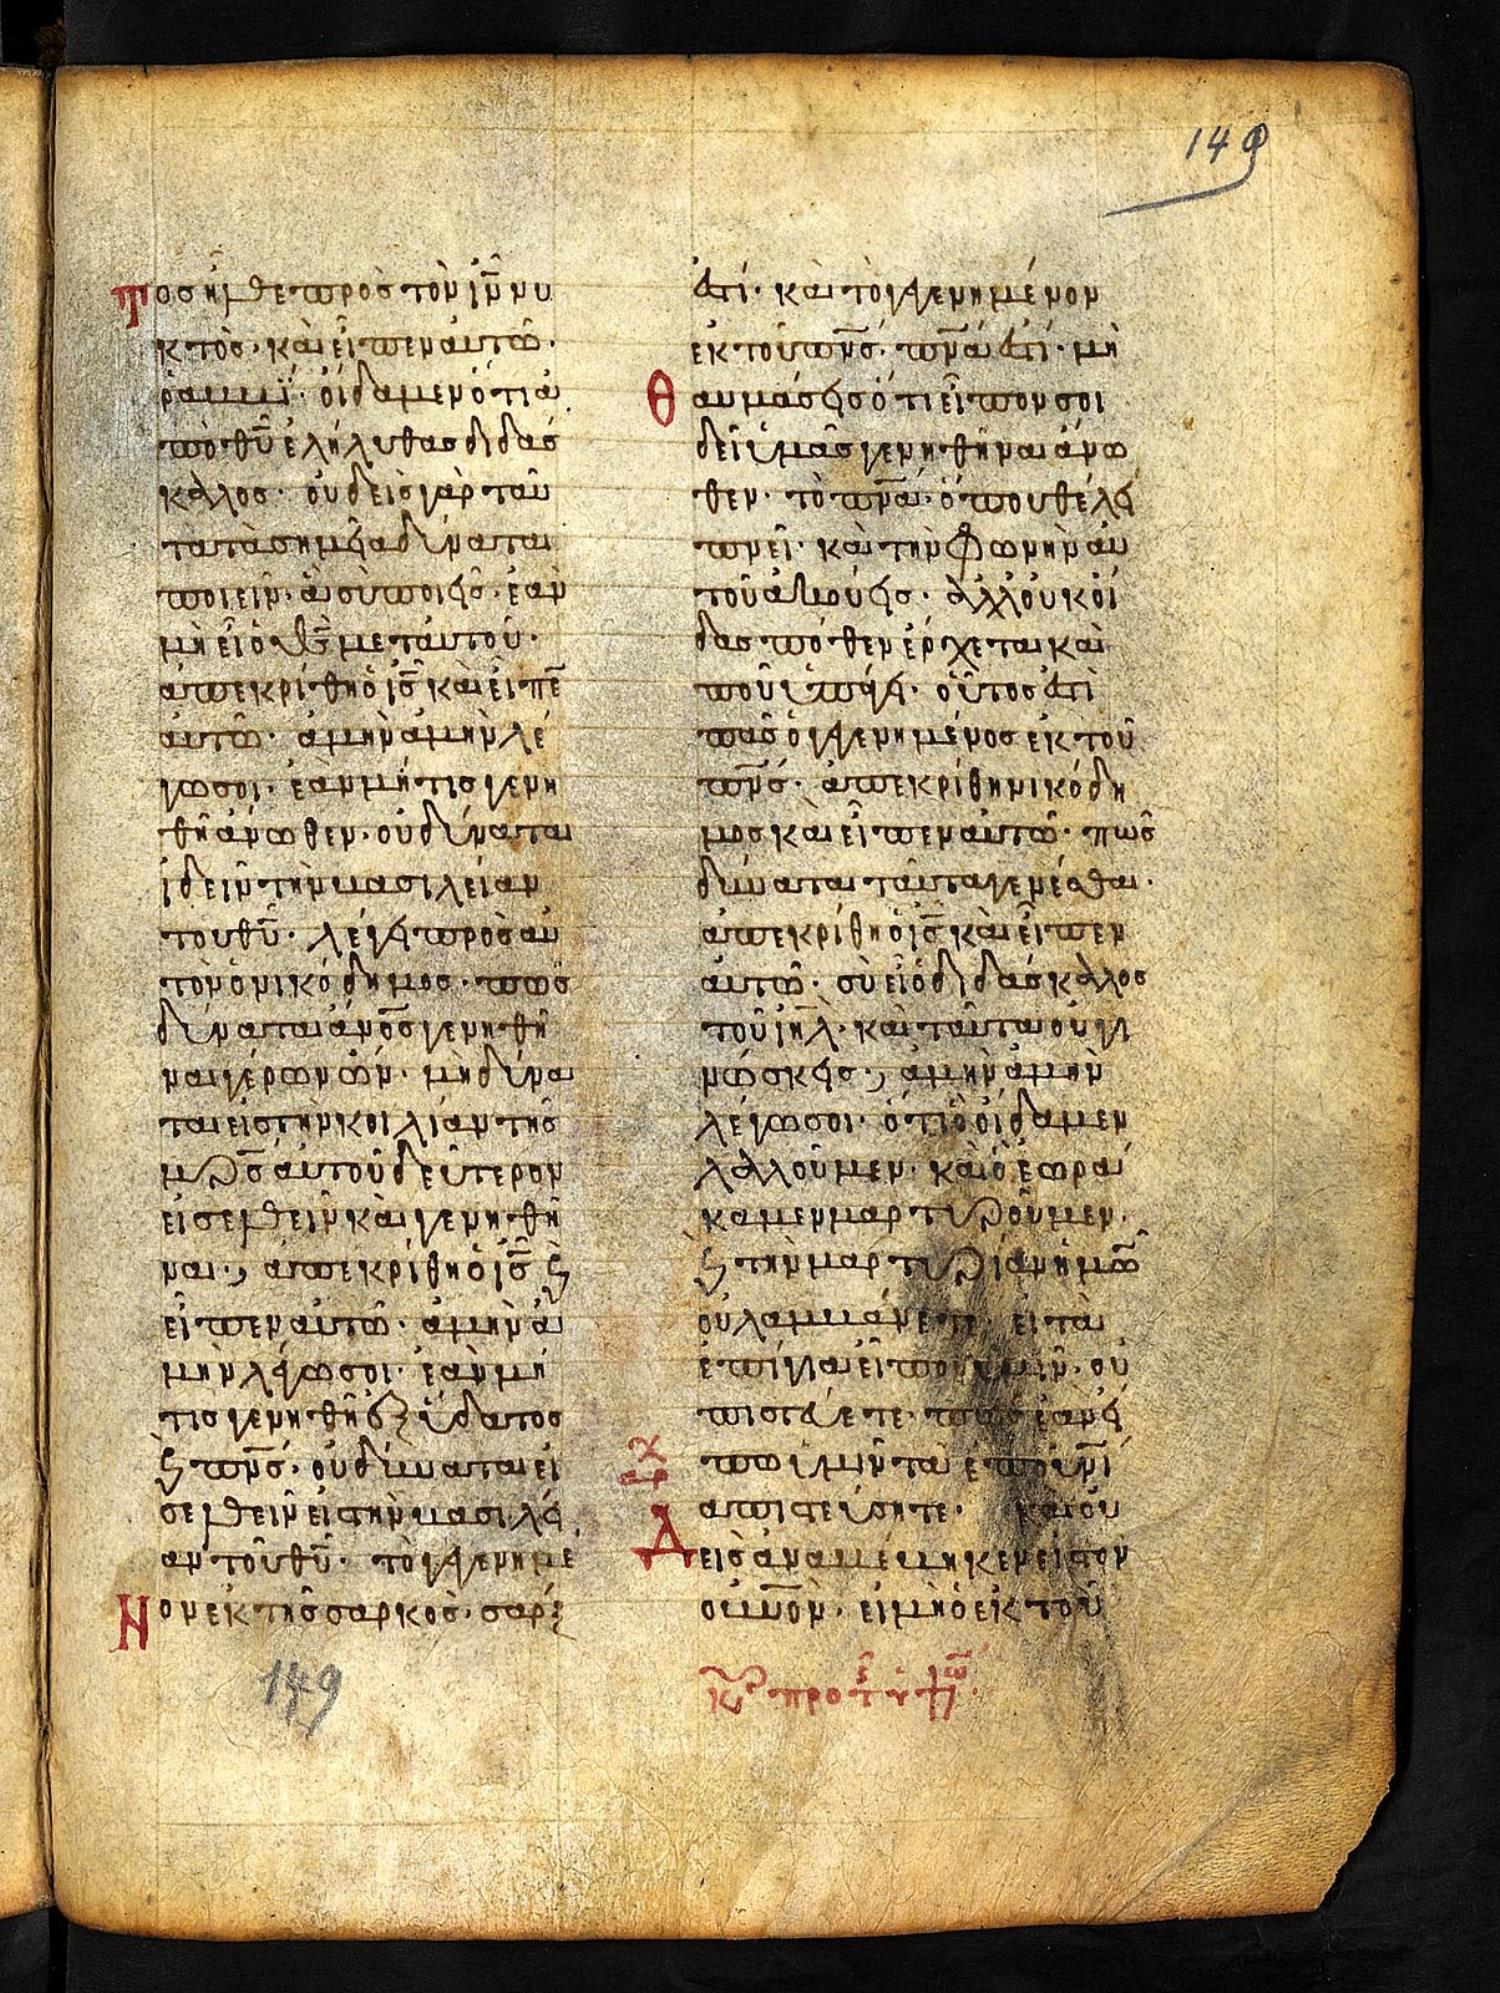 149
τοσ ἦλθε πρὸσ τὸν ἰ̅ν̅ νυ
κτὸσ· καὶ εἶπεν αὐτῶ·
ῥαββί· οἴδαμεν ὅτι ἀ
πὸ θ̅υ̅ ἐλήλυθασ διδάσ
καλοσ· οὐδεὶσ γὰρ ταῦ
τα τὰ σημεῖα δύναται
ποιεῖν· ἃ σὺ ποιεῖσ· ἐὰν
μὴ εἰ ὁ θ̅σ̅ μετ αὐτοῦ·
ἀπεκρίθη ὁ ἰ̅σ̅ καὶ εἶπε̅
αὐτῶ· ἀμὴν ἀμὴν λέ
γω σοι· ἐὰν μή τισ γενη
θῆ ἄνωθεν· οὐ δύναται
ἰδεῖν τὴν βασιλείαν
του θ̅υ̅· λέγει πρὸσ αὐ
τὸν ὁ νικόδημοσ· πῶσ
δύναται ἄν̅ο̅σ̅ γενηθῆ
ναι γέρων ὤν· μὴ δύνα
ται εἰσ τὴν κοιλίαν τῆσ
μ̅ρ̅σ̅ αὐτοῦ δεύτερον
εἰσελθεῖν καὶ γενηθῆ
ναι·, ἀπεκρίθη ὁ ἰ̅σ̅ ϗ
εἶπεν αὐτῶ· ἀμὴν ἀ
μὴν λέγω σοι· ἐὰν μή
τισ γενηθῆ ἐξ ὕδατοσ
ϗ π̅ν̅σ̅· οὐ δύναται εἰ
σελθεῖν εἰσ τὴν βασιλεί
αν τοῦ θ̅υ̅· τὸ γεγενημέ
νον ἐκ τῆσ σαρκὸσ· σάρξ
149
ἐστί· καὶ τὸ γεγενημένον
ἐκ τοῦ π̅ν̅σ̅· π̅ν̅ά̅ ἐστί· μὴ
θαυμάσεισ ὅτι εἶπον σοι
δεῖ ὑμᾶσ γενηθῆναι ἄνω
θεν· τὸ π̅ν̅ά̅· ὅπου θέλει
πνεῖ· καὶ τὴν φωνὴν αὐ
τοῦ ἀκούεισ· ἀλλ οὐκ οἶ
δασ πόθεν ἔρχεται καὶ
ποῦ ὑπάγει· οὕτοσ ἐστὶ
πᾶσ ὁ γεγενημένοσ ἐκ τοῦ
π̅ν̅σ̅· ἀπεκρίθη νικόδη
μοσ καὶ εἶπεν αὐτῶ· πῶσ
δύναται ταῦτα γενέσθαι·
ἀπεκρίθη ὁ ἰ̅σ̅ καὶ εἶπεν
αὐτῶ· σὺ εἶ ὁ διδάσκαλοσ
τοῦ ἰ̅η̅λ̅· καὶ ταῦτα οὐ γι
νώσκεισ·, ἀμὴν ἀμὴν
λέγω σοι· ὅτι ὃ οἴδαμεν
λαλοῦμεν· καὶ ὃ ἑωρά
καμεν μαρτυροῦμεν·
ϗ τὴν μαρτυρίαν ἡμῶ̅
οὐ λαμβάνετε· εἰ τὰ
ἐπίγεια εἶπον ὑμῖν· οὐ
πιστεύετε· πῶσ ἐὰν εἴ
πω ὑμῖν τὰ ἐπουρ̅ν̅ί
α πιστεύσητε· καὶ οὐ
χ
αρ
Δεὶσ ἀναβέβηκεν εἰσ τὸν
οὐ̅νὸν· εἰ μὴ ὁ ἐκ τοῦ